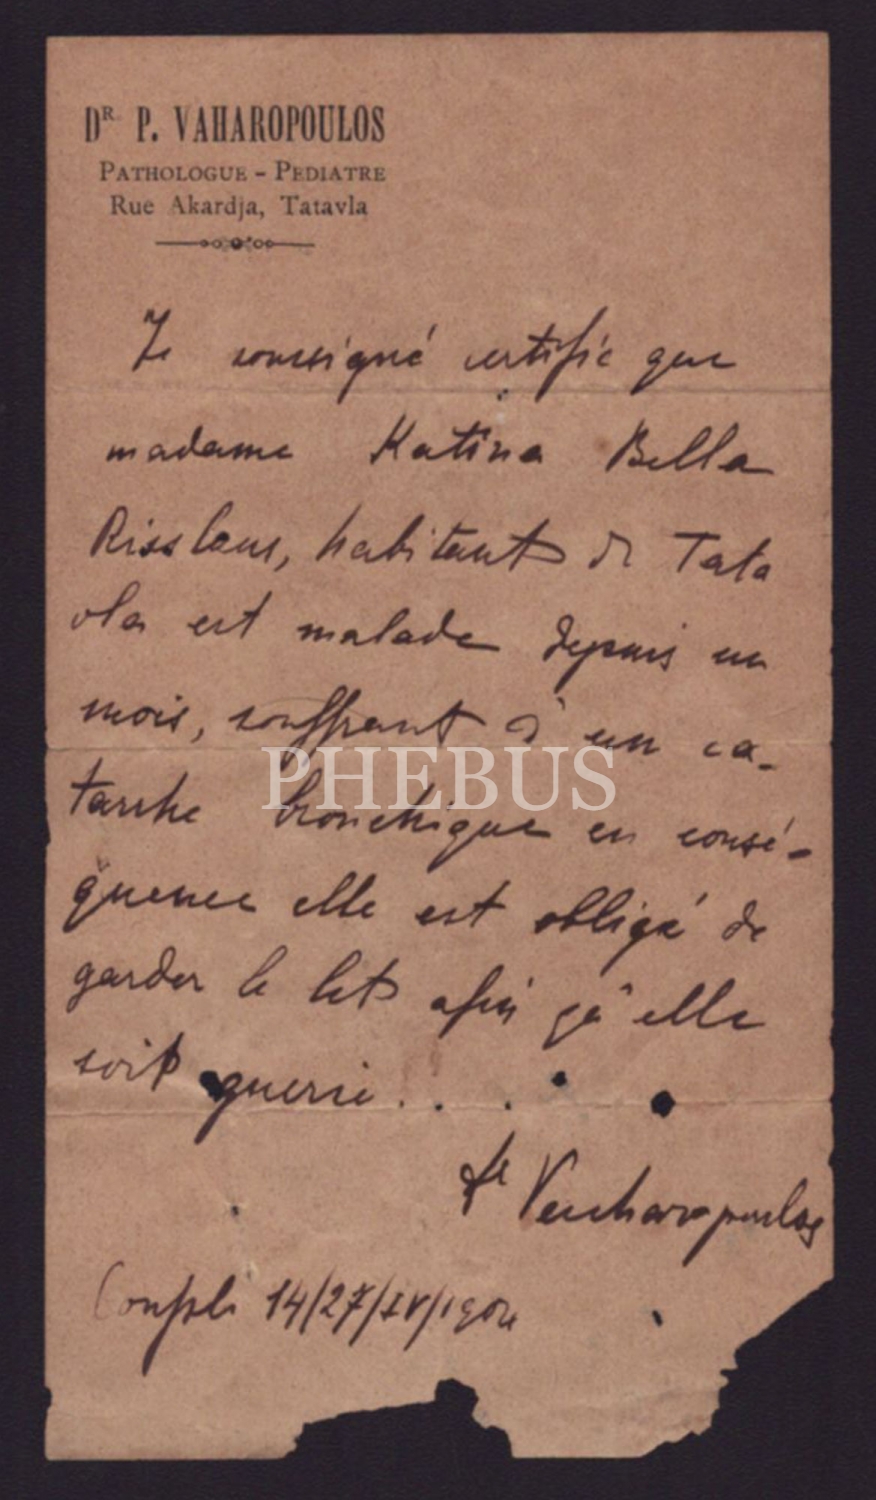 DR P. VAHAROPOULOS
PATHOLOGUE - PEDIATRE
Rue Akardja, Tatavla
Je soussigné certifie que
madame Katina Bella
Risslaus, habitant de Tata
vla est malade depuis un
mois, souffrant d'un ca-
tarrhe bronchique en consé-
quence elle est obligé de
garder le lit afin qu'elle
soit guerie...
PHEBUS
Dr Vaharopoulos
Conspli 14/27/IV/1904